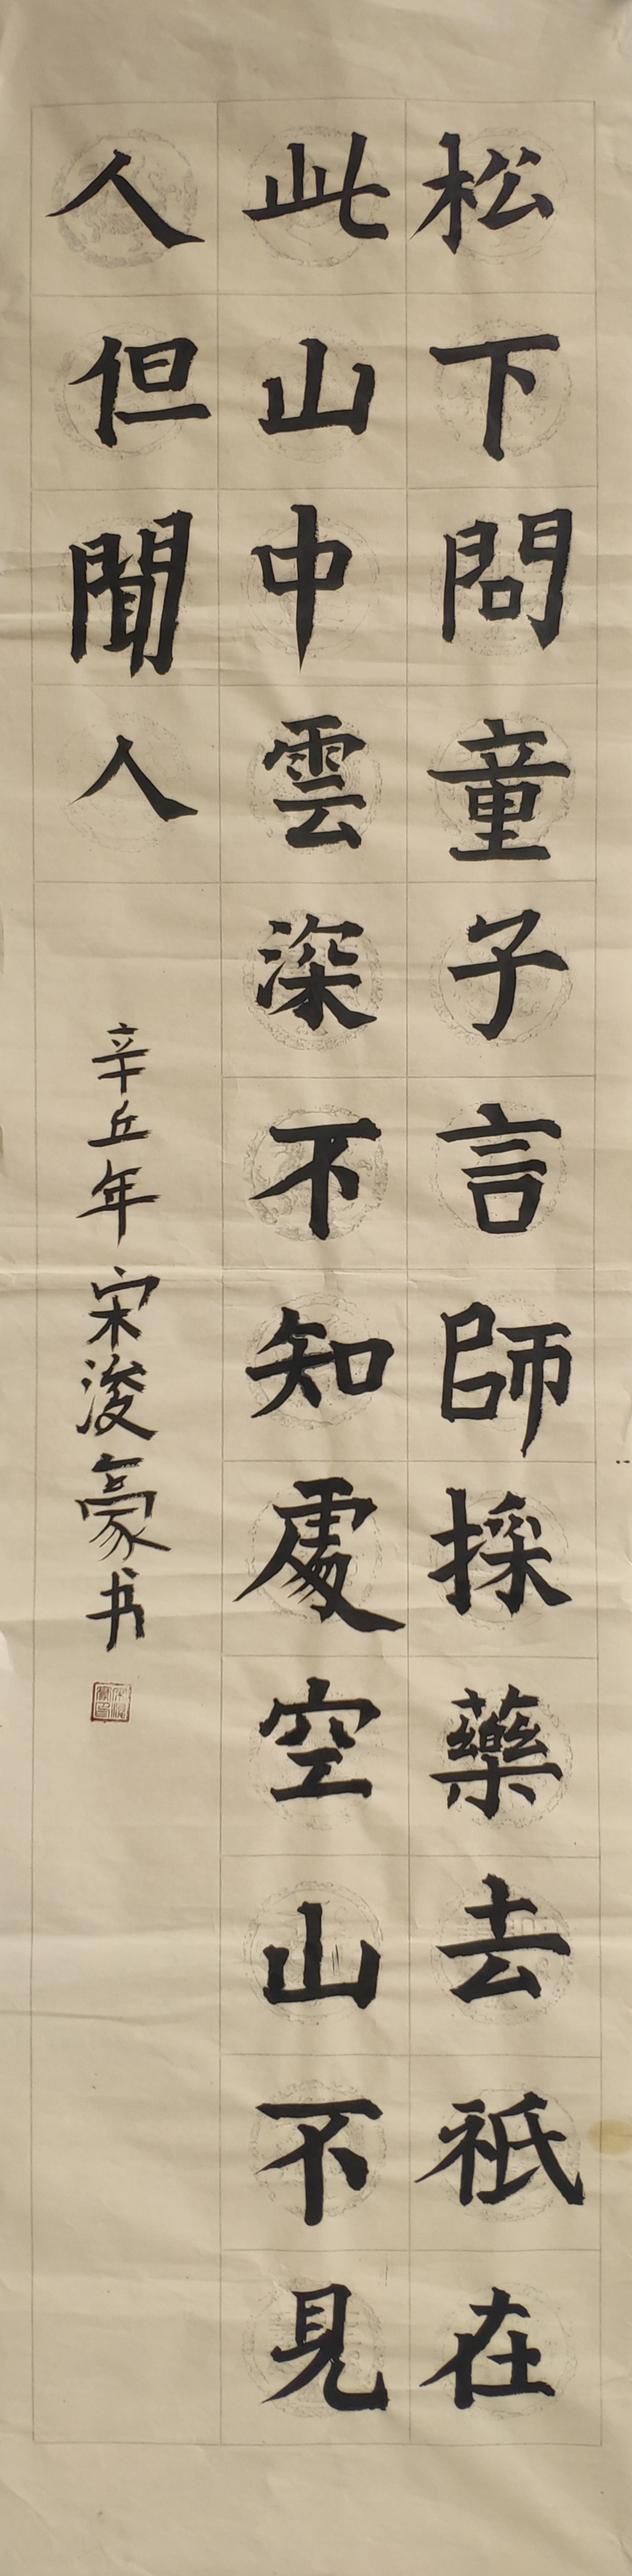 松下問童子言師採藥去祇在
此山中雲深不知處空山不見
人但聞人
辛丘年宋浚豪书